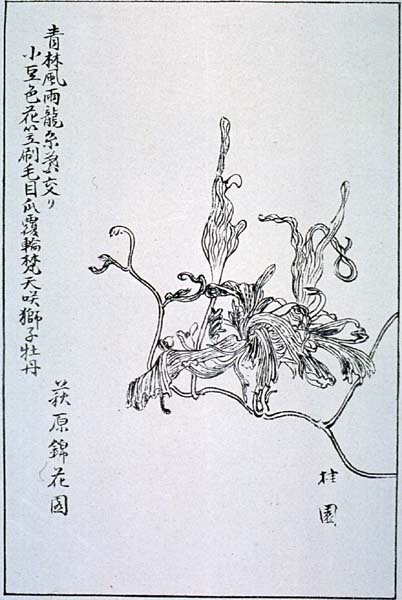 青林風雨龍糸葉交り
小豆色花笠刷毛目爪覆輪梵天咲獅子牡丹
萩原錦花園
桂園